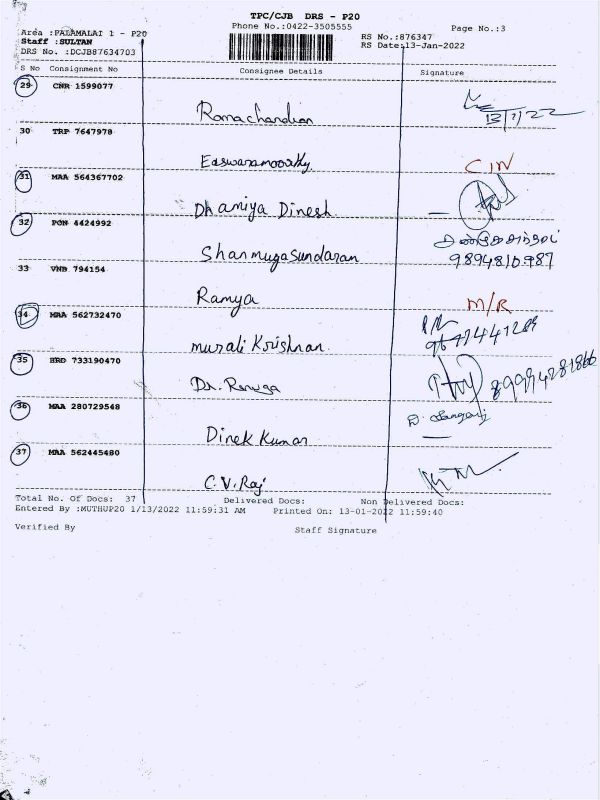 TPC/CJB DRS - P20
Phone No.:0422-3505555
Page No.:3
Area :PALAMALAI 1 - P20
Staff :SULTAN
DRS No. :DCJB87634703
RS No.:876347
RS Date:13-Jan-2022
S No Consignment No Consignee Details Signature
29 CNR 1599077
Ramachandran 13/1/22
30 TRP 7647978
Easwaramoorthy C/N
31 MAA 564367702
Dhamiya Dinesh
32 PON 4424992
Shanmugasundaram
9894810987
33 VNB 794154
Ramya M/R
34 MAA 562732470
murali Krishnan
35 HRD 733190470
Dr. Renuga
36 MAA 280729548
Dinek Kumar
37 MAA 562445480
C.V.Raj
Total No. Of Docs: 37 Delivered Docs: Non Delivered Docs:
Entered By :MUTHUP20 1/13/2022 11:59:31 AM Printed On: 13-01-2022 11:59:40
Verified By Staff Signature